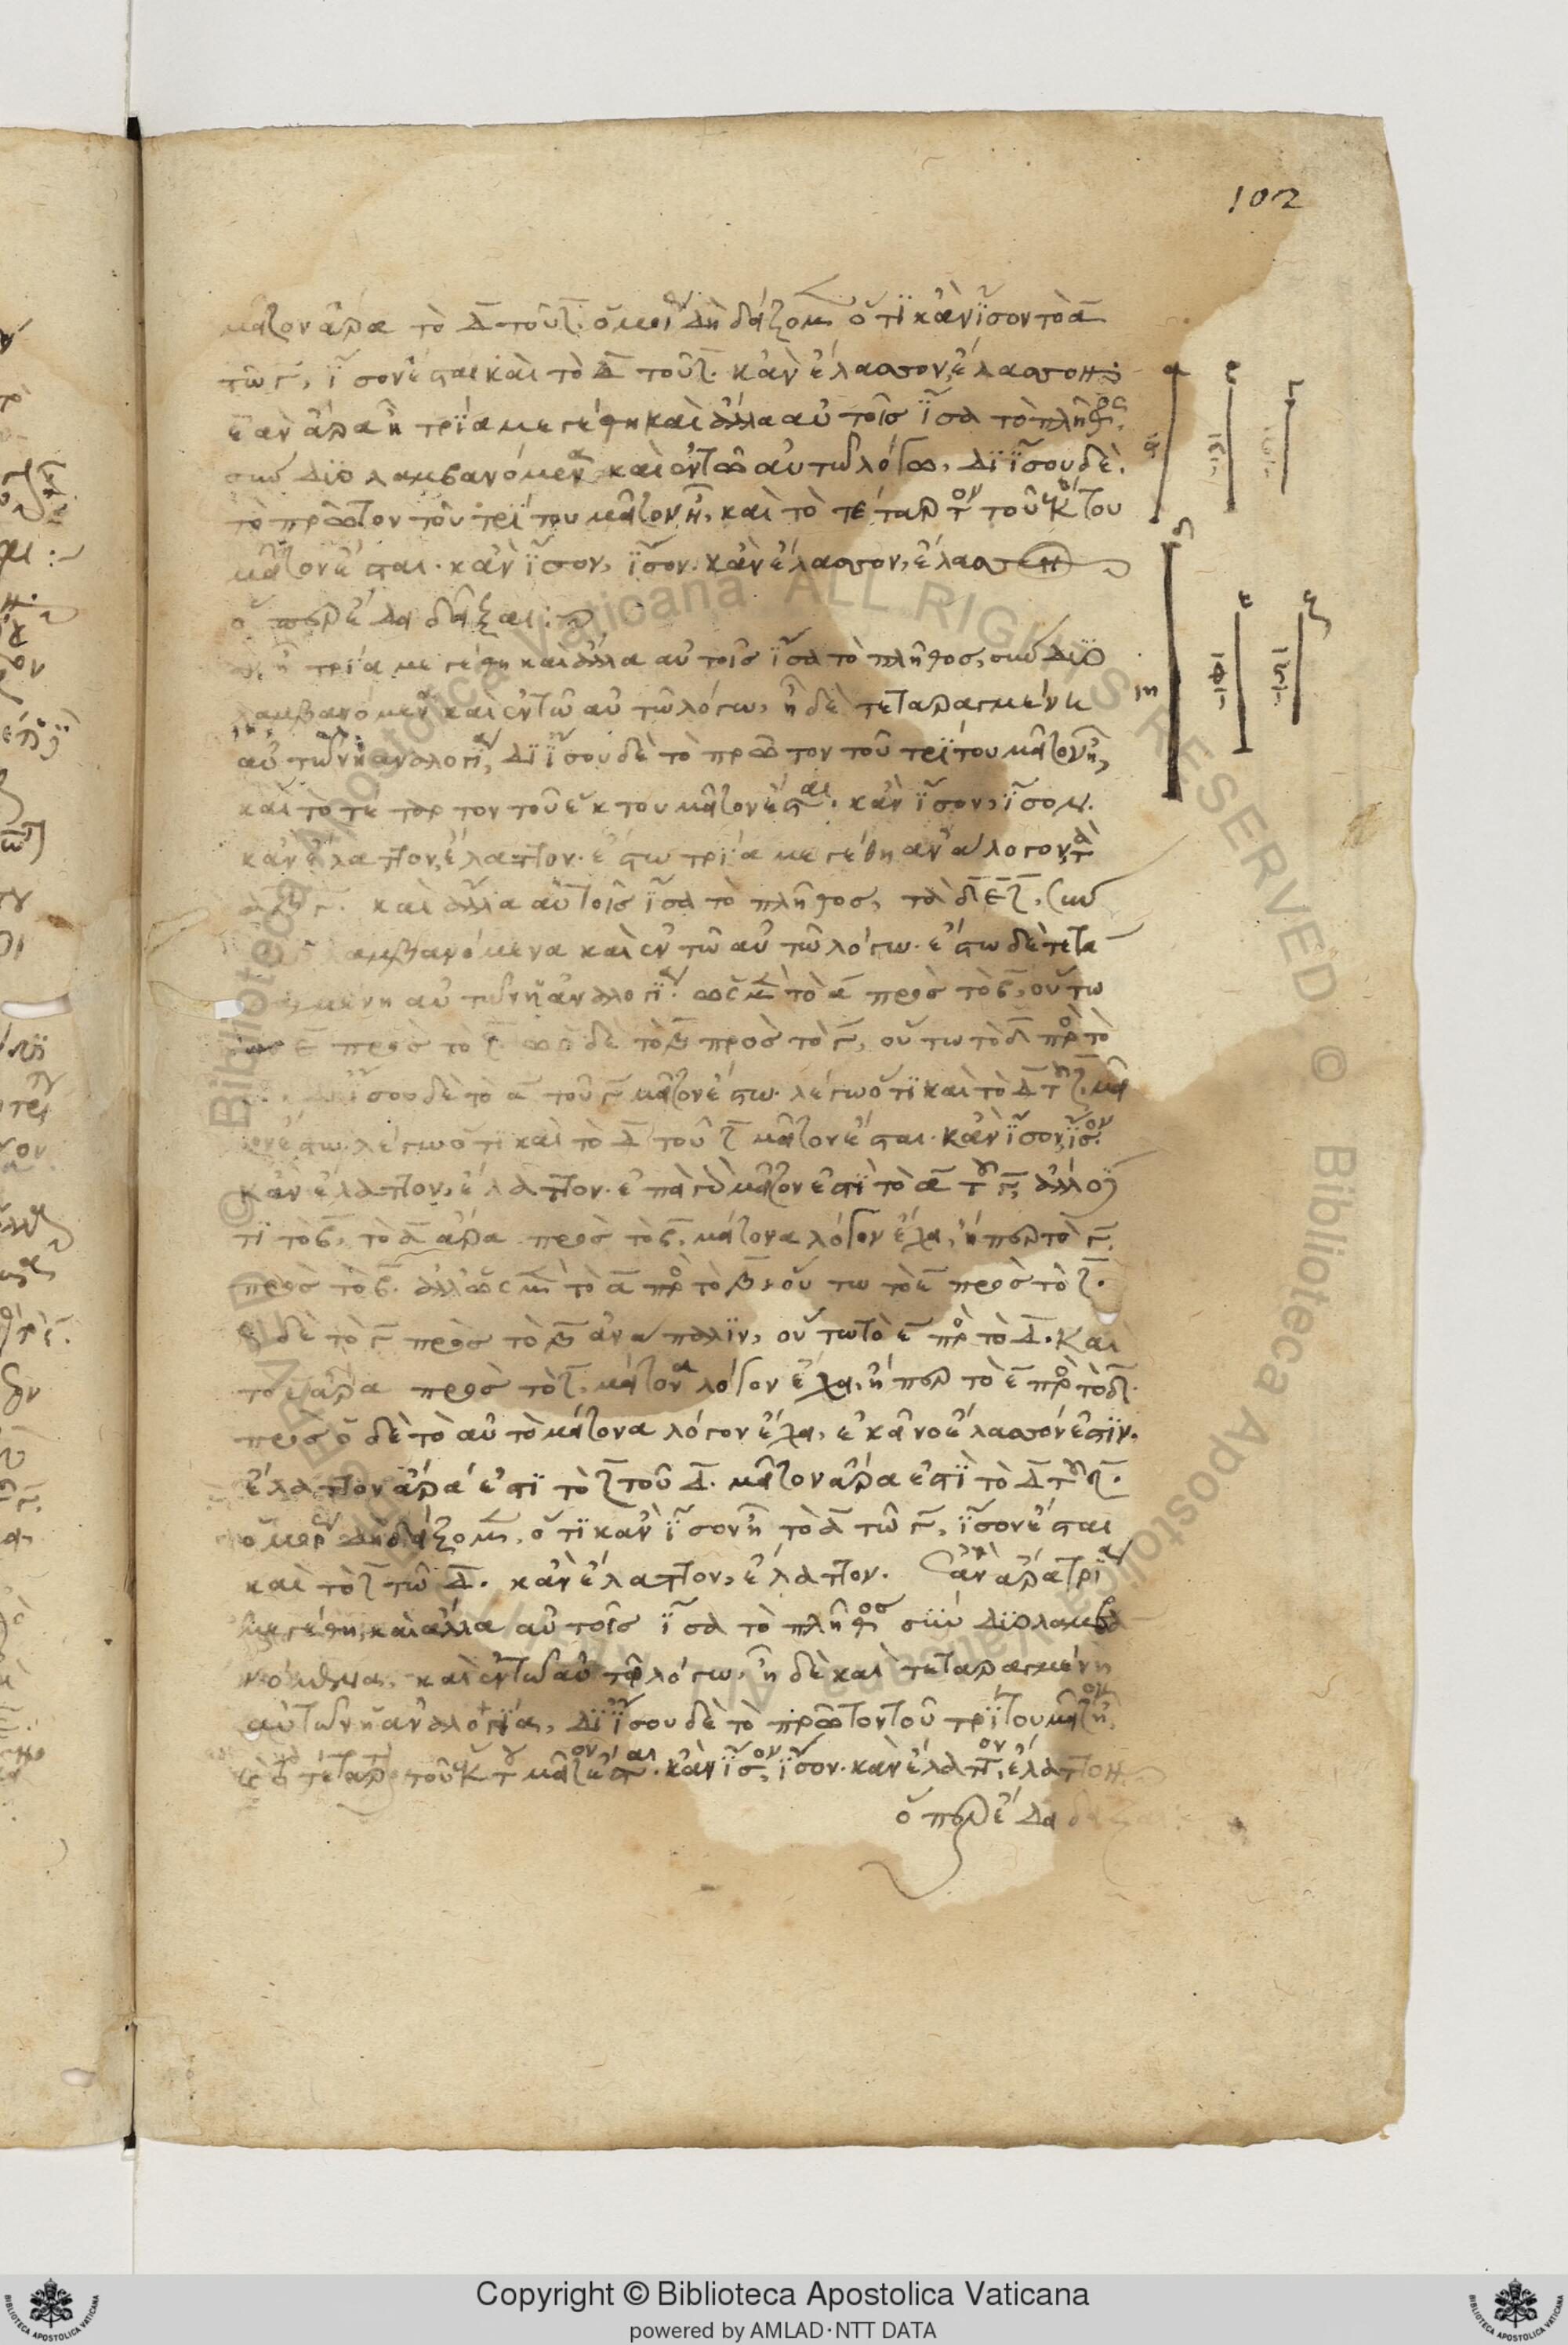 102
μεῖζον ἄρα τὸ Δ τοῦ Ζ. ὁμοί δὴ δείξομ ὅτι κἂν ἴσον τὸ α
τῶ Γ, ἴσον ἔσται καὶ τὸ Δ τοῦ Ζ. κἂν ἔλασσον, ἔλασσον
ἐὰν ἄρα ἦ τρία μεγέθη καὶ ἄλλα αὐτοῖς ἴσα τὸ πλῆθος,
σὺν δύο λαμβανόμενα καὶ ἐν τῶ αὐτῶ λόγω, δι ἴσου δὲ
τὸ πρῶτον τοῦ τρίτου μεῖζον ἦ, καὶ τὸ τέταρτον τοῦ ἕκτου
μεῖζον ἔσται. κἂν ἴσον, ἴσον. κἂν ἔλασσον, ἔλασσον
ὅπερ ἔδει δεῖξαι:
ἦ τρία μεγέθη καὶ ἄλλα αὐτοῖς ἴσα τὸ πλῆθος, σὺν δύο
λαμβανόμεν καὶ ἐν τῶ αὐτῶ λόγω, ἦ δὲ τεταραγμένη
αὐτῶν ἡ ἀναλογία, δι ἴσου δὲ τὸ πρῶτον τοῦ τρίτου μεῖζον ἦ,
καὶ τὸ τέταρτον τοῦ ἕκτου μεῖζον ἔσται. κἂν ἴσον, ἴσον.
κἂν ἔλαττον, ἔλαττον. ἔστω τρία μεγέθη ἀνάλογον, τὰ
καὶ ἄλλα αὐτοῖς ἴσα τὸ πλῆθος, τὰ δ ε ζ, σὺν
λαμβανόμενα καὶ ἐν τῶ αὐτῶ λόγω. ἔστω δὲ τετα
μένη αὐτῶν ἡ ἀναλογία. ὡς μὲν τὸ α πρὸς τὸ β, οὕτω
ε πρὸς τὸ ζ. ὡς δὲ τὸ β πρὸς τὸ γ, οὕτω τὸ δ πρὸ τὸ
ἴσου δὲ τὸ α τοῦ γ μεῖζον ἔστω. λέγω ὅτι καὶ τὸ Δ τοῦ ζ. μεῖ
ζον ἔστω. λέγω ὅτι καὶ τὸ Δ τοῦ ζ μεῖζον ἔσται. κἂν ἴσον, ἴσον.
κἂν ἔλαττον, ἔλαττον. ἐπεὶ γὰρ μεῖζον ἐστὶ τὸ α τοῦ γ, ἄλλο
τι τὸ β, τὸ α ἄρα πρὸς τὸ β, μείζονα λόγον ἔχει, ἤπερ τὸ γ
πρὸς τὸ β. ἀλλ ὡς μὲν τὸ α πρὸ τὸ β, οὕτω τὸ ε πρὸς τὸ ζ.
δὲ τὸ γ πρὸς τὸ β ἀνάπαλιν, οὕτω τὸ ε πρὸ τὸ Δ. καὶ
τὸ ε ἄρα πρὸς τὸ ζ, μείζονα λόγον ἔχει, ἤπερ τὸ ε πρὸ τὸ δ.
πρὸς ὃ δὲ τὸ αὐτὸ μείζονα λόγον ἔχει, ἐκεῖνο ἔλασσόν ἐστιν.
ἔλαττον ἄρα ἐστὶ τὸ ζ τοῦ Δ. μεῖζον ἄρα ἐστὶ τὸ Δ τοῦ ζ.
ὁμοί δὴ δείξομ, ὅτι κἂν ἴσον ἦ τὸ α τῶ γ, ἴσον ἔσται
καὶ τὸ ζ τῶ Δ. κἂν ἔλαττον, ἔλαττον. ἐὰν ἄρα τρία
μεγέθη, καὶ ἄλλα αὐτοῖς ἴσα τὸ πλῆθος σὺν δύο λαμβα
νόμενα, καὶ ἐν τῶ αὐτῶ λόγω, ἦ δὲ καὶ τεταραγμένη
αὐτῶν ἡ ἀναλογία, δι ἴσου δὲ τὸ πρῶτον τοῦ τρίτου μεῖζον ἦ,
τὸ τέταρτ τοῦ ἕκτου μεῖζον ἔσται. κἂν ἴσον, ἴσον. κἂν ἔλαττον, ἔλαττον
ὅπερ ἔδει δεῖξαι
Copyright © Biblioteca Apostolica Vaticana
powered by AMLAD·NTT DATA
© Biblioteca Apostolica Vaticana ALL RIGHTS RESERVED © Biblioteca Apostolica Vaticana